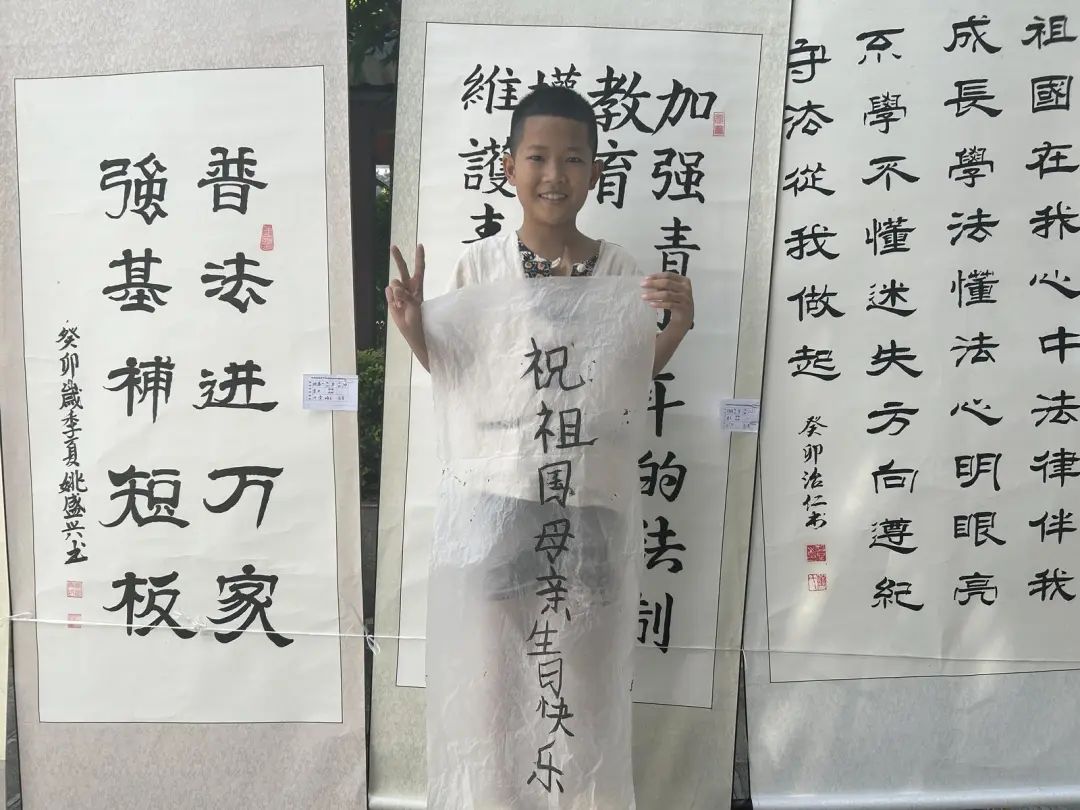 普法进万家
強基補短板
癸卯歲季夏姚盛兴书
加强青
教育
維護青
年的法制
祝祖国母亲生日快乐
祖國在我心中法律伴我
成長學法懂法心明眼亮
不學不懂迷失方向遵紀
守法從我做起
癸卯治仁书